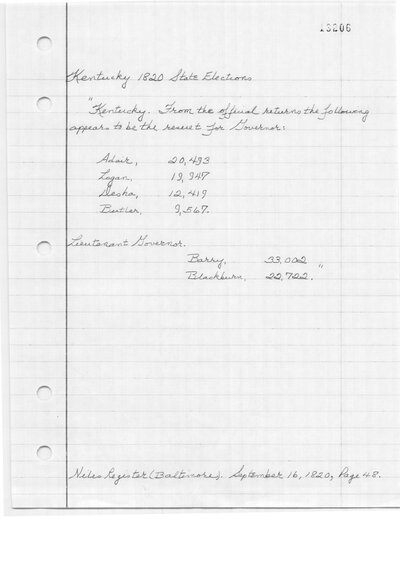 13206
Kentucky 1820 State Elections
"Kentucky. From the official returns the following
appears to be the result for Governor:
Adair, 20,493
Logan, 19,947
Desha, 12,419
Butler, 9,567.
Lieutenant Governor.
Barry, 33,002 "
Blackburn, 22,722.
Niles Register (Baltimore). September 16, 1820, Page 48.